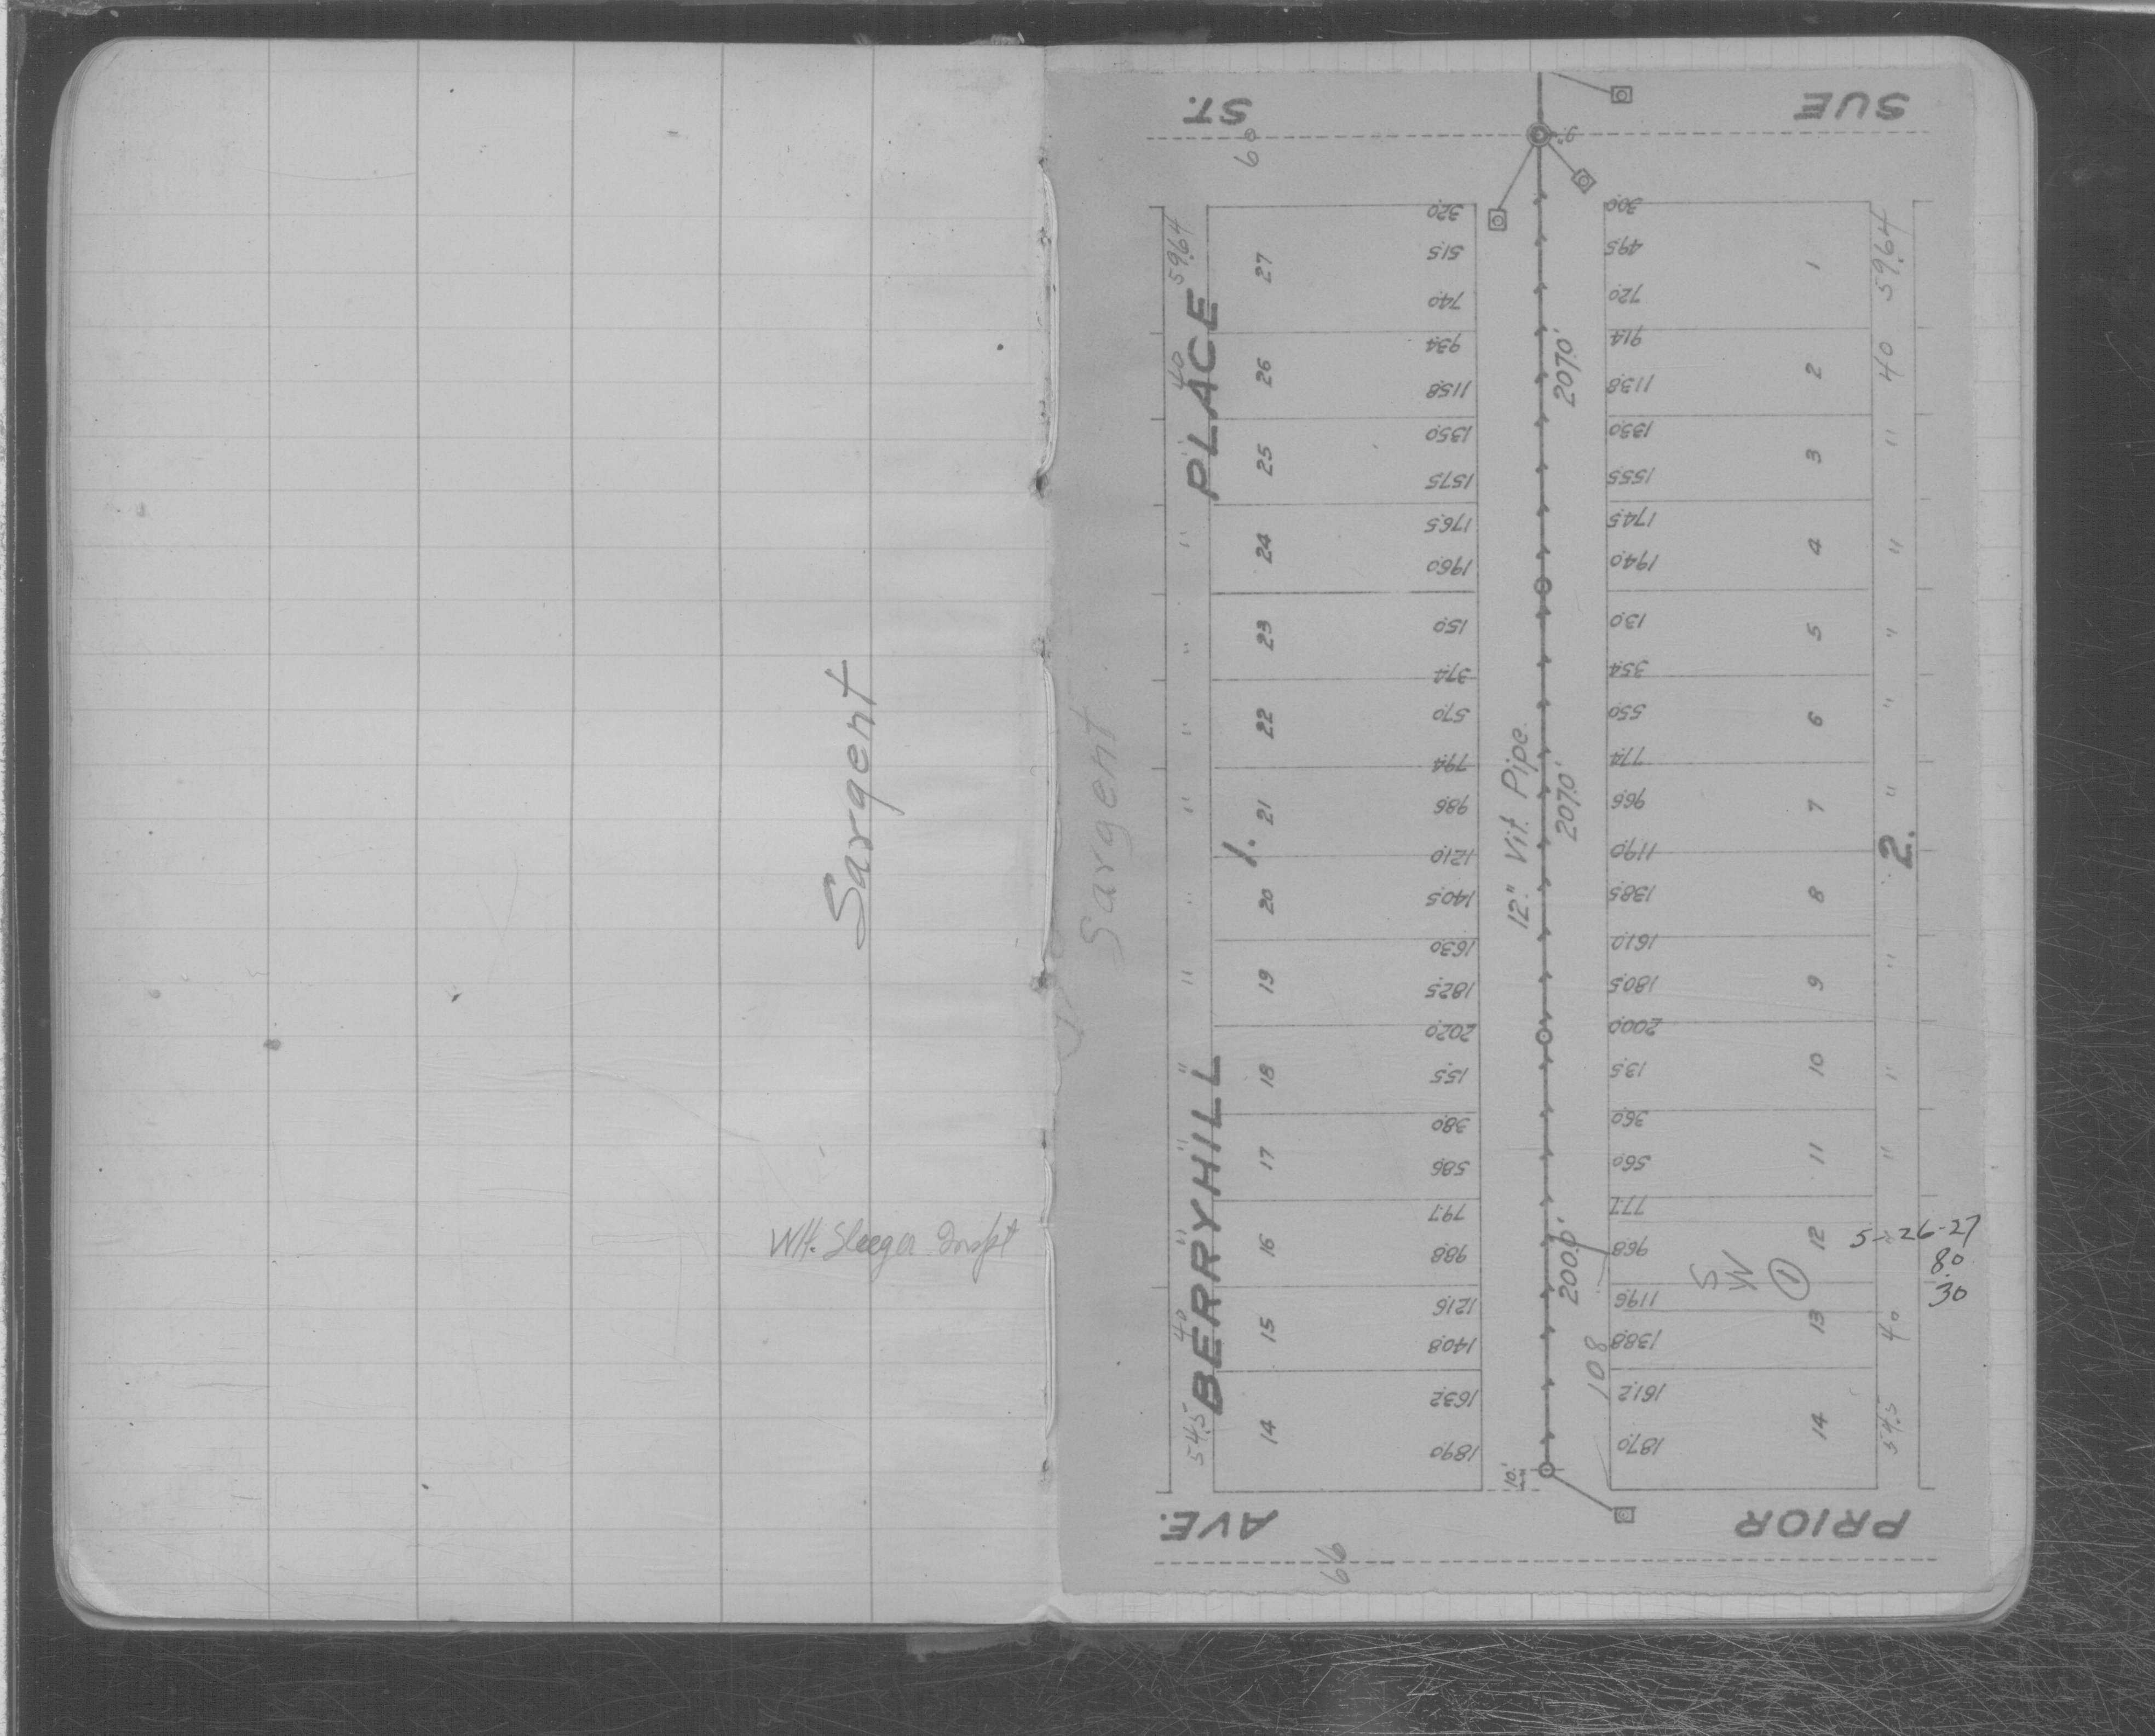 Sargent
WH. Sleeger Inspt
Sargent
ST.
SUE
60
BERRYHILL PLACE
59.64
40
"
"
"
"
"
"
"
"
"
40
54.5
27
26
25
24
23
22
1.
21
20
19
18
17
16
15
14
320
515
740
934
1158
1350
1575
1765
1960
150
374
570
794
986
1210
1405
1630
1825
2020
155
380
586
797
988
1216
1408
1632
1890
12." Vit. Pipe.
207.0'
207.0'
200.0'
10.'
108
300
495
720
914
1138
1330
1555
1745
1940
130
354
550
774
966
1190
1385
1610
1805
2000
135
360
560
777
968
1196
1388
1612
1870
S
W
1
1
2
3
4
5
6
7
8
9
10
11
12
13
14
59.64
40
"
"
"
"
"
2.
"
"
"
40
54.5
5-26-27
8.0
30
AVE.
PRIOR
66